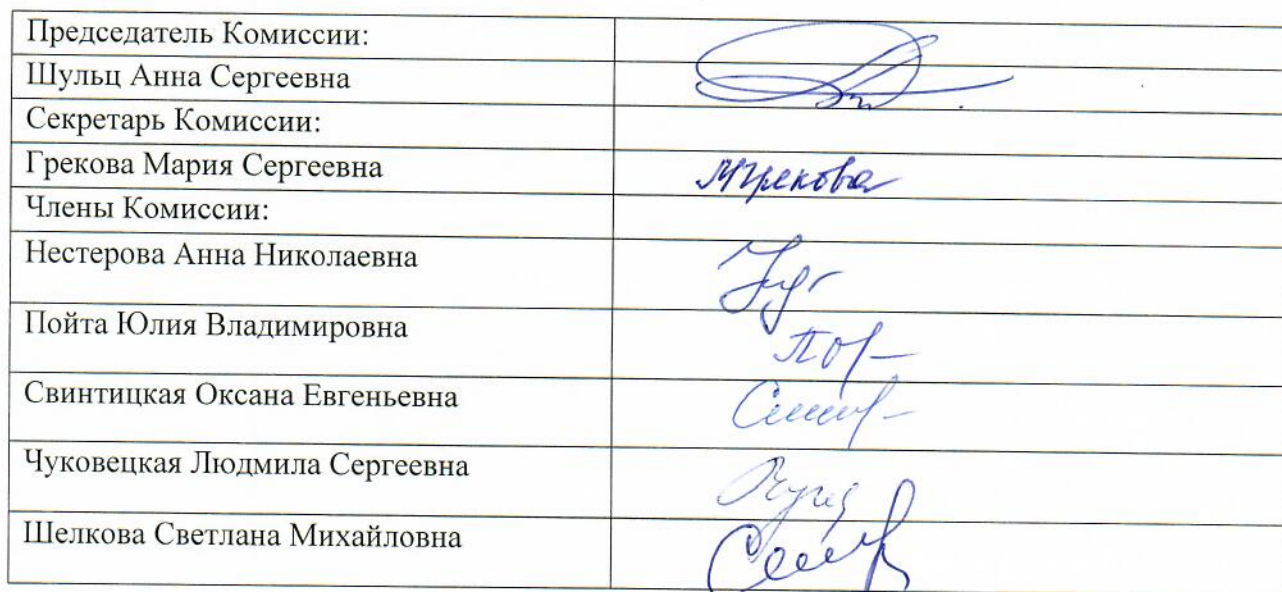 Председатель Комиссии:
Шульц Анна Сергеевна
Секретарь Комиссии:
Грекова Мария Сергеевна
МГрекова
Члены Комиссии:
Нестерова Анна Николаевна
Пойта Юлия Владимировна
Свинтицкая Оксана Евгеньевна
Чуковецкая Людмила Сергеевна
Шелкова Светлана Михайловна